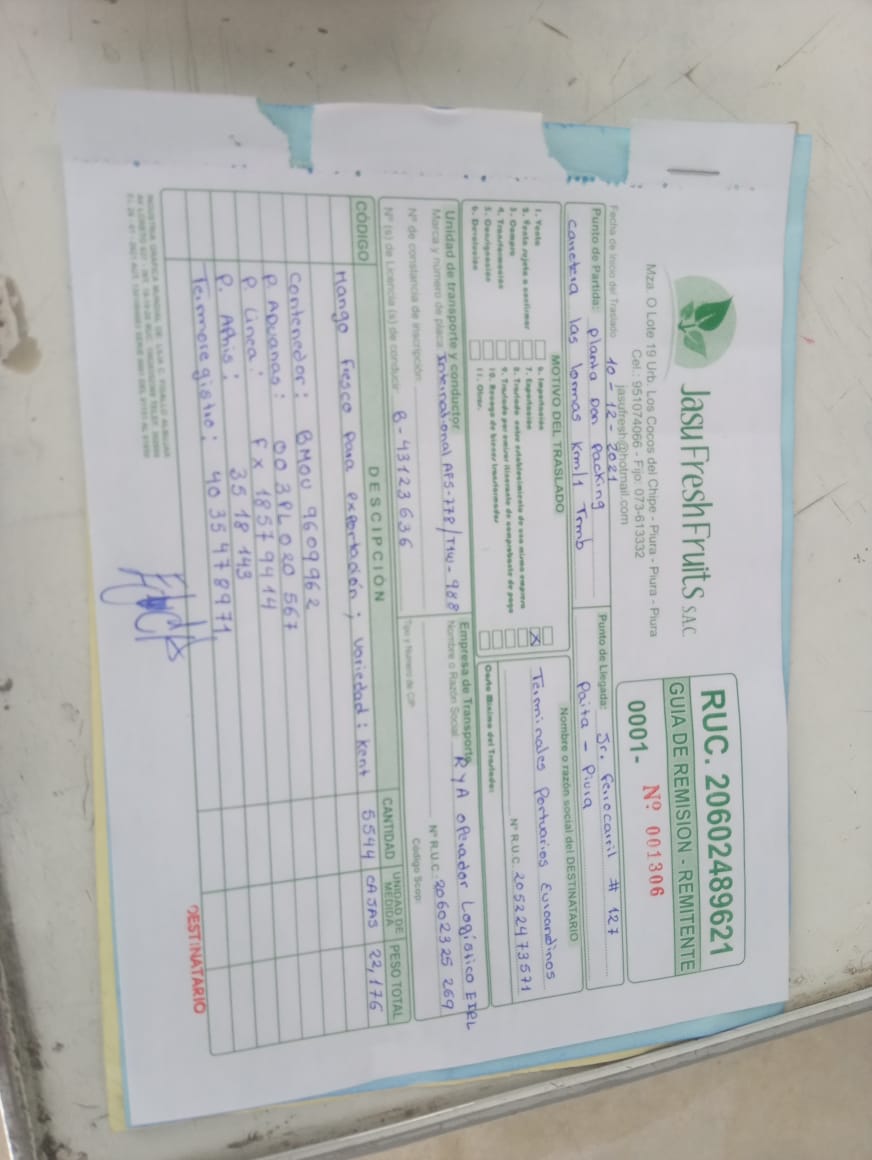 JasuFreshFruits S.A.C.
Mza. O Lote 19 Urb. Los Cocos del Chipe - Piura - Piura - Piura
Cel.: 951074066 - Fijo: 073-613332
jasufresh@hotmail.com
RUC. 20602489621
GUIA DE REMISION - REMITENTE
0001- Nº 001306
Fecha de Inicio del Traslado 10-12-2021
Punto de Partida: Planta Don Packing
carretera las lomas Km/1 Tamb
Punto de Llegada: Jr. Ferrocarril # 127
Paita - Piura
MOTIVO DEL TRASLADO
1. Venta
2. Venta sujeta a confirmar
3. Compra
4. Transformación
5. Consignación
6. Devolución
6. Importación
7. Exportación X
8. Traslado entre establecimiento de una misma empresa
9. Traslado por emisor itinerante de comprobante de pago
10. Recojo de bienes transformados
11. Otros:
Nombre o razón social del DESTINATARIO
Terminales Portuarios Euroandinos
Nº R.U.C. 20532473571
Costo Mínimo del Traslado:
Unidad de transporte y conductor
Marca y número de placa International AFS-778/T1W-988
Nº de constancia de inscripción:
Nº (s) de Licencia (s) de conducir B-43123636
Empresa de Transporte
Nombre o Razón Social RYA operador Logístico EIRL
Nº R.U.C. 20602325269
Tipo y Número de C/P Código Scop:
CÓDIGO DESCIPCIÓN CANTIDAD UNIDAD DE MEDIDA PESO TOTAL
Mango fresco para exportación; variedad: Kent 5544 CAJAS 22,176
Contenedor: BMOU 9609962
P. Aduanas: 003PL020567
P. Linea: FX 18579414
P. Aphis: 3518143
Termoregistro: 4035478971
DESTINATARIO